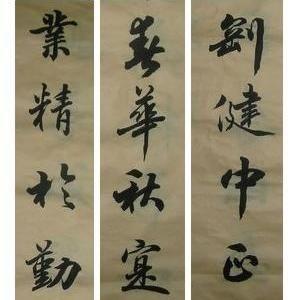 剛健中正
春華秋寔
業精於勤